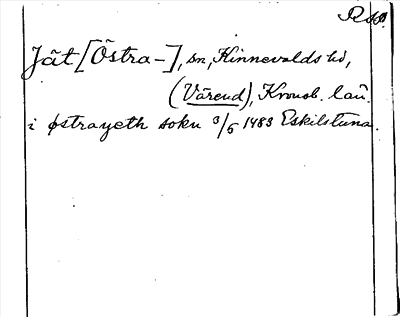 Jät [Östra-], sn, Kinnevalds hd,
(Värend), Kronob. län.
i østrayeth sokn 3/6 1483 Eskilstuna.